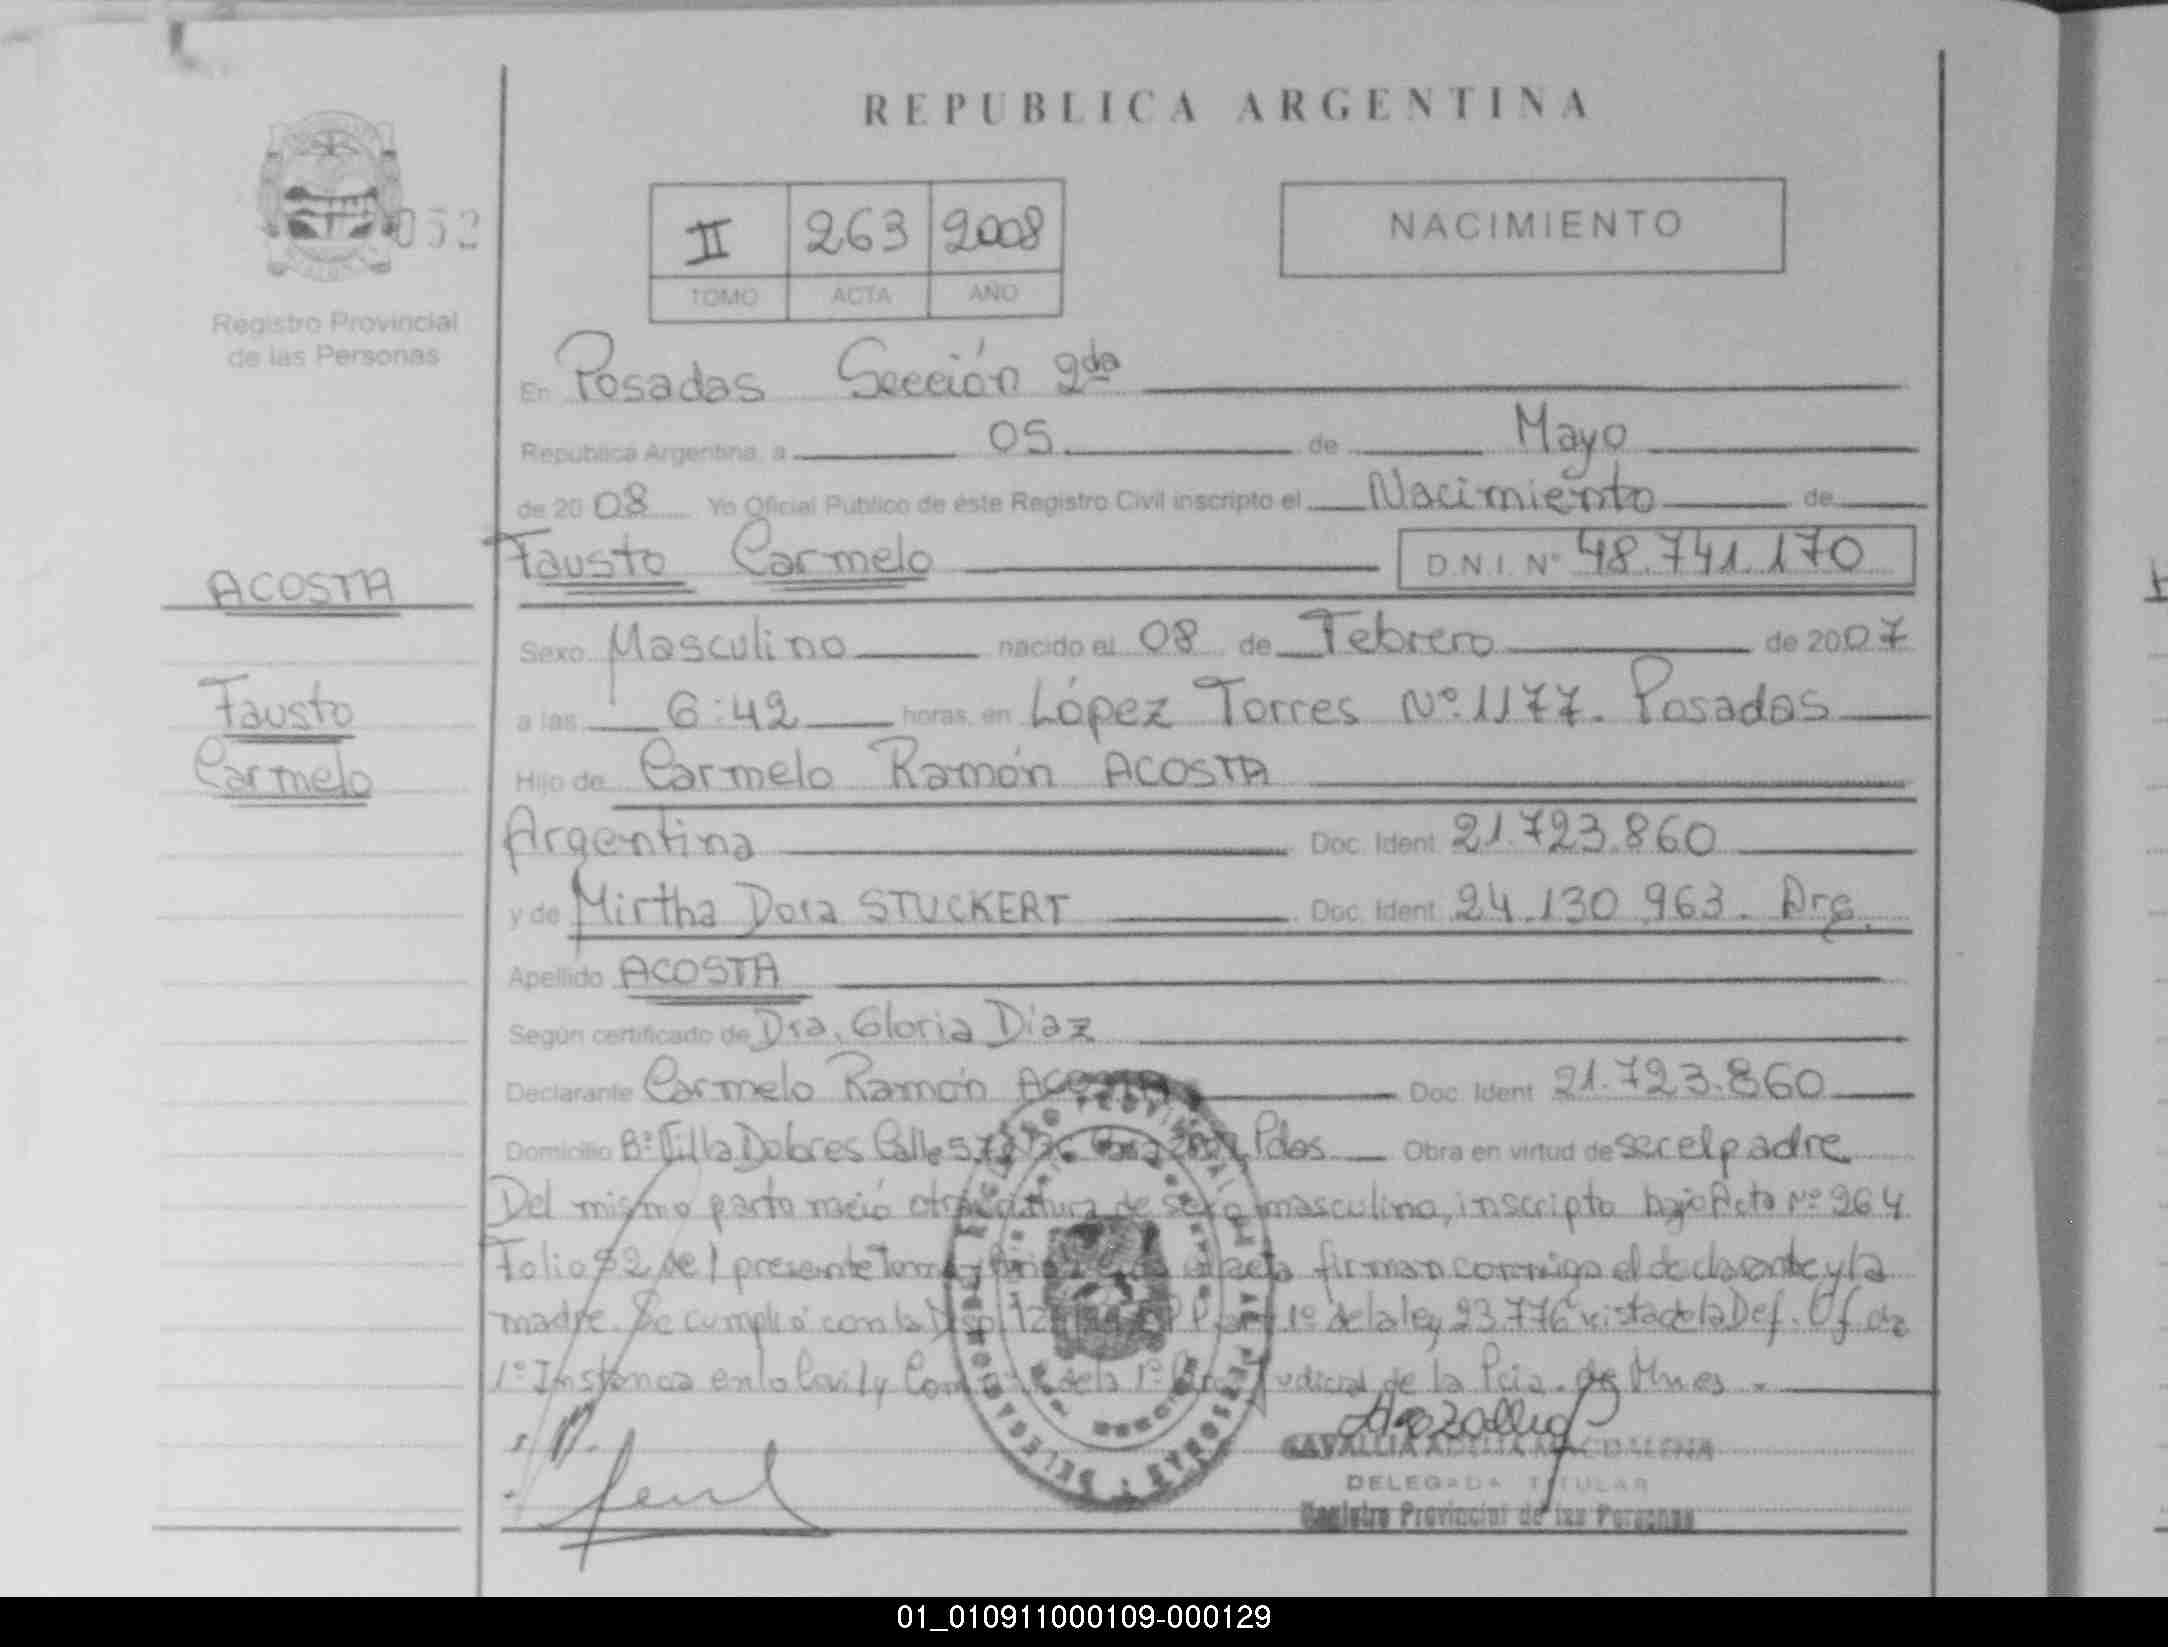 REPUBLICA ARGENTINA
052
Registro Provincial
de las Personas
II 263 2008
TOMO ACTA AÑO
NACIMIENTO
En Posadas Sección 2da
República Argentina, a 05 de Mayo
de 2008 Yo Oficial Público de éste Registro Civil inscripto el Nacimiento de
Fausto Carmelo D.N.I. Nº 48.741.170
ACOSTA
Fausto
Carmelo
Sexo Masculino nacido el 08 de Febrero de 2007
a las 6:42 horas, en López Torres Nº 1177. Posadas
Hijo de Carmelo Ramón ACOSTA
Argentina Doc. Ident 21.723.860
y de Mirtha Dora STUCKERT Doc. Ident 24.130.963. Arg.
Apellido ACOSTA
Según certificado de Dra. Gloria Díaz
Declarante Carmelo Ramón ACOSTA Doc. Ident 21.723.860
Domicilio Bº Villa Dolores Calle Pdas Obra en virtud de ser el padre
Del mismo parto nació otra criatura de sexo masculino, inscripto bajo Acta Nº 264
Folio 52 del presente Tomo firman conmigo el declarante y la
madre. Se cumplió con la Disp. 1º de la ley 23.776 vista de la Def. Of. de
1º Instancia en lo Civil y Com. de la 1º Judicial de la Pcia. de Mnes.
CAVALLIA ADELIA MAGDALENA
DELEGADA TITULAR
Registro Provincial de las Personas
01_010911000109-000129